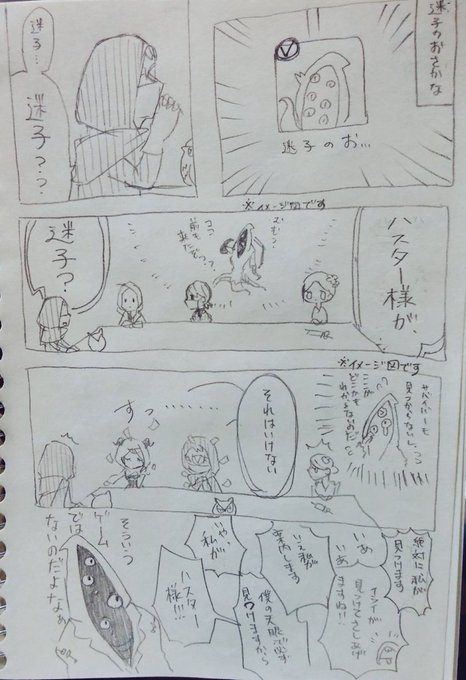 迷子のおさかな
迷子のお…
迷子…
迷子??
※イメージ図です
ハスター様が、
むむっ
ココ
前も
来たぞっ?
迷子?
※イメージ図です
サバイバーも
見つからないし
ここが
どこかも
わからないのだ
それはいけない
すっ
絶対に私が
見つけます
いあ
いあ
イシイが
見つけてさしあげ
ますね!!
いえ私が
案内します
僕の天眼で必ず
見つけますから
いや
私が
ハスター
様!!!
そういう
ゲーム
では
ないのだよなぁ